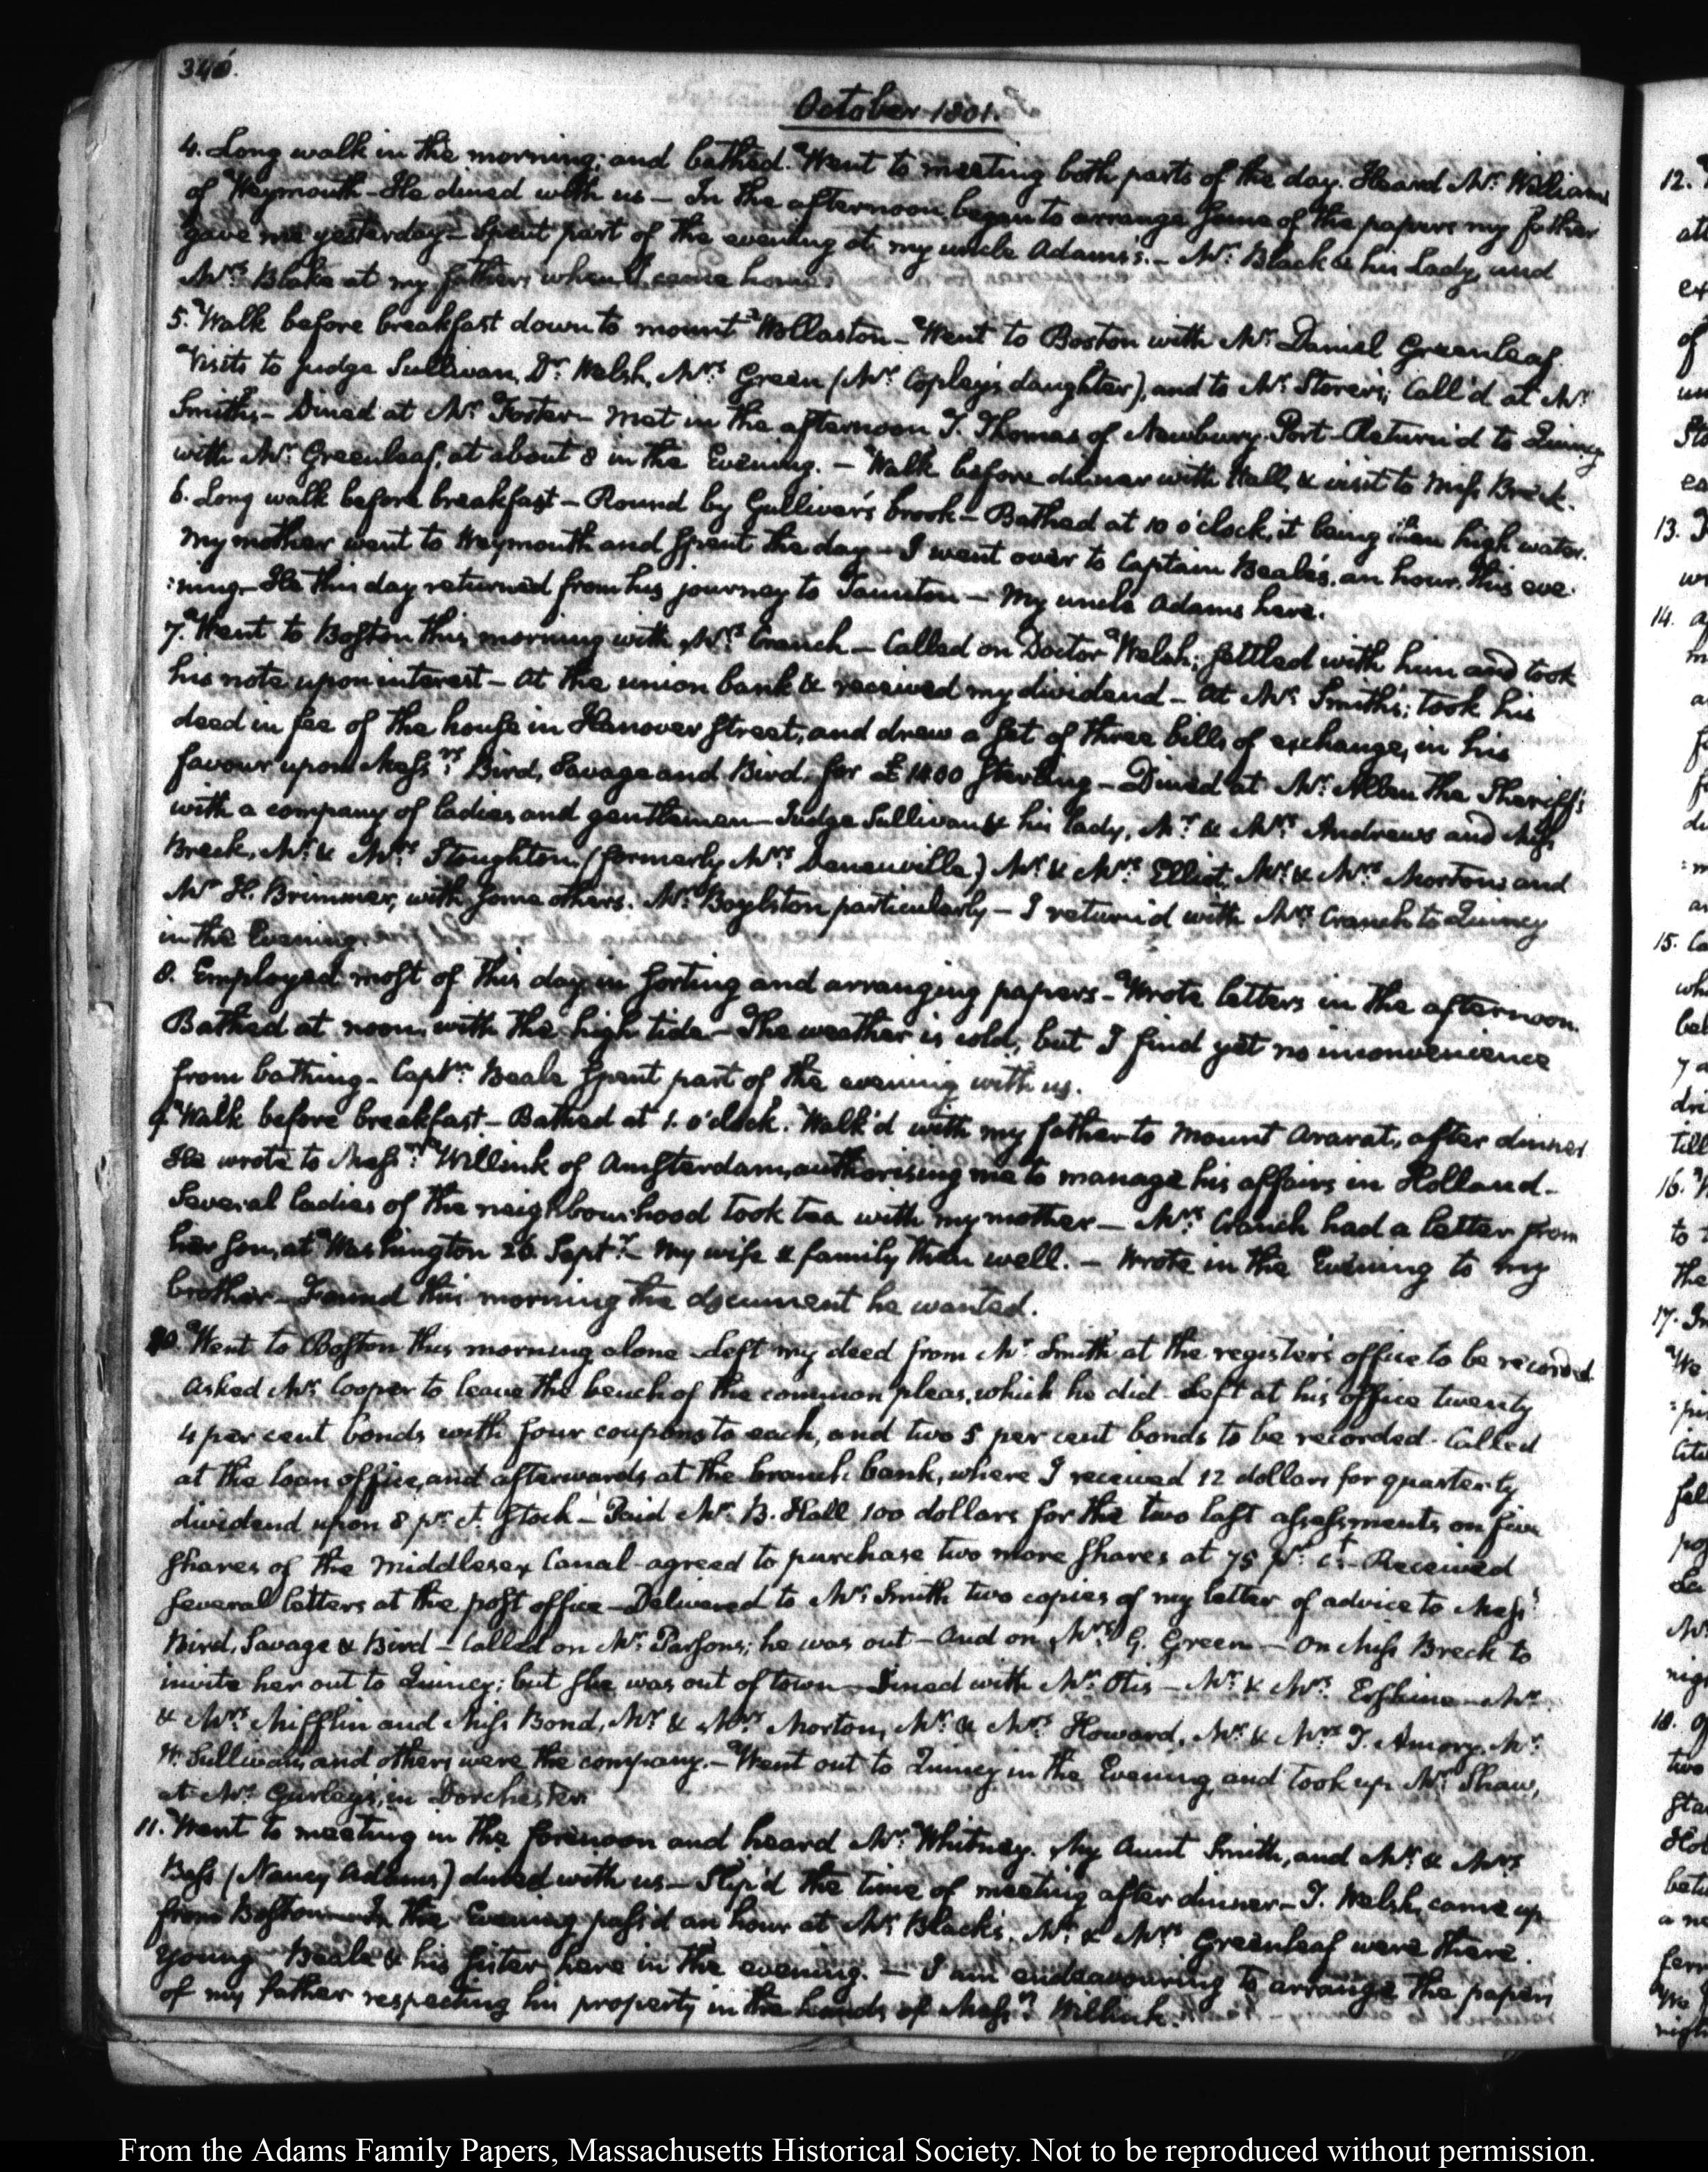 346.
October 1801.
4. Long walk in the morning; and bathed. Went to meeting both parts of the day. Heard Mr. Williams
of Weymouth - He dined with us - In the afternoon began to arrange some of the papers my father
gave me yesterday - Spent part of the evening at my uncle Adams's. - Mr. Black & his Lady, and
Mrs. Blake at my father's when I came home.
5. Walk before breakfast down to mount Wollaston - Went to Boston with Mr. Daniel Greenleaf.
Visits to Judge Sullivan, Dr. Welsh, Mrs. Green (Mr. Copley's daughter), and to Mr. Storer's; Call'd at Mr.
Smith's - Dined at Mr. Foster - Met in the afternoon J. Thomas of Newbury-Port - Return'd to Quincy
with Mr. Greenleaf, at about 8 in the Evening. - Walk before dinner with Hall, & visit to Miss Breck.
6. Long walk before breakfast - Round by Gulliver's brook - Bathed at 10 o'clock, it being then high water.
My mother went to Weymouth and spent the day - I went over to Captain Beale's, an hour, this eve-
:ning - He this day returned from his journey to Taunton - My uncle Adams here.
7. Went to Boston this morning with Mrs. Cranch - Called on Doctor Welsh; settled with him and took
his note upon interest - At the union bank & received my dividend - At Mr. Smith's; took his
deed in fee of the house in Hanover Street, and drew a set of three bills of exchange, in his
favour upon Messrs. Bird, Savage and Bird, for £ 1400 Sterling - Dined at Mr. Allen the Sheriff's
with a company of ladies and gentlemen - Judge Sullivan & his lady, Mr. & Mrs. Andrews and Miss
Breck, Mr. & Mrs. Stoughton (formerly Mrs. ) Mr. & Mrs. Elliot, Mr. & Mrs. Morton and
Mr H. Brimmer, with some others. Mr. Boylston particularly - I return'd with Mrs. Cranch to Quincy
in the Evening.
8. Employed most of this day in sorting and arranging papers - Wrote letters in the afternoon.
Bathed at noon, with the high tide - The weather is cold, but I find yet no inconvenience
from bathing - Captn. Beale spent part of the evening with us.
9. Walk before breakfast - Bathed at 1. o'clock. Walk'd with my father to Mount Ararat, after dinner
He wrote to Messrs. Willink of Amsterdam, authorising me to manage his affairs in Holland -
Several ladies of the neighbourhood took tea with my mother - Mrs. Cranch had a letter from
her son, at Washington 26. Septr. - My wife & family then well. - Wrote in the Evening to my
brother - Found this morning the document he wanted.
10. Went to Boston this morning alone - Left my deed from Mr. Smith at the register's office to be recorded.
Asked Mr. Cooper to leave the bench of the common pleas, which he did - Left at his office twenty
4 per cent bonds with four coupons to each, and two 5 per cent bonds to be recorded - Called
at the loan office, and afterwards at the branch bank, where I received 12 dollars for quarterly
dividend upon 8 pr. Ct. Stock - Paid Mr. B. Hall 100 dollars for the two last assessments on five
shares of the Middlesex Canal - agreed to purchase two more shares at 75 pr. Ct. - Received
several letters at the post office - Delivered to Mr. Smith two copies of my letter of advice to Messrs
Bird, Savage & Bird - Called on Mr. Parsons; he was out - And on Mrs. G. Green - On Miss Breck to
invite her out to Quincy; but she was out of town - Dined with Mr. Otis - Mr. & Mrs. Erskine - Mr.
& Mrs. Mifflin and Miss Bond, Mr. & Mrs. Morton, Mr. & Mrs Howard, Mr. & Mrs J. Amory, Mr.
W. Sullivan, and others were the company. - Went out to Quincy in the Evening, and took up Mr. Shaw,
at Mr. Gurley's, in Dorchester.
11. Went to meeting in the forenoon and heard Mr. Whitney. My Aunt Smith, and Mr. & Mrs.
Bass (Nancy Adams) dined with us - Slip'd the time of meeting after dinner - T. Welsh, came up
from Boston - In the Evening pass'd an hour at Mr. Black's. Mr. & Mrs. Greenleaf were there.
Young Beale & his sister here in the evening. - I am endeavouring to arrange the papers
of my father respecting his property in the hands of Messrs. Willink.
12.
13.
14.
15.
16.
17.
18.
From the Adams Family Papers, Massachusetts Historical Society. Not to be reproduced without permission.